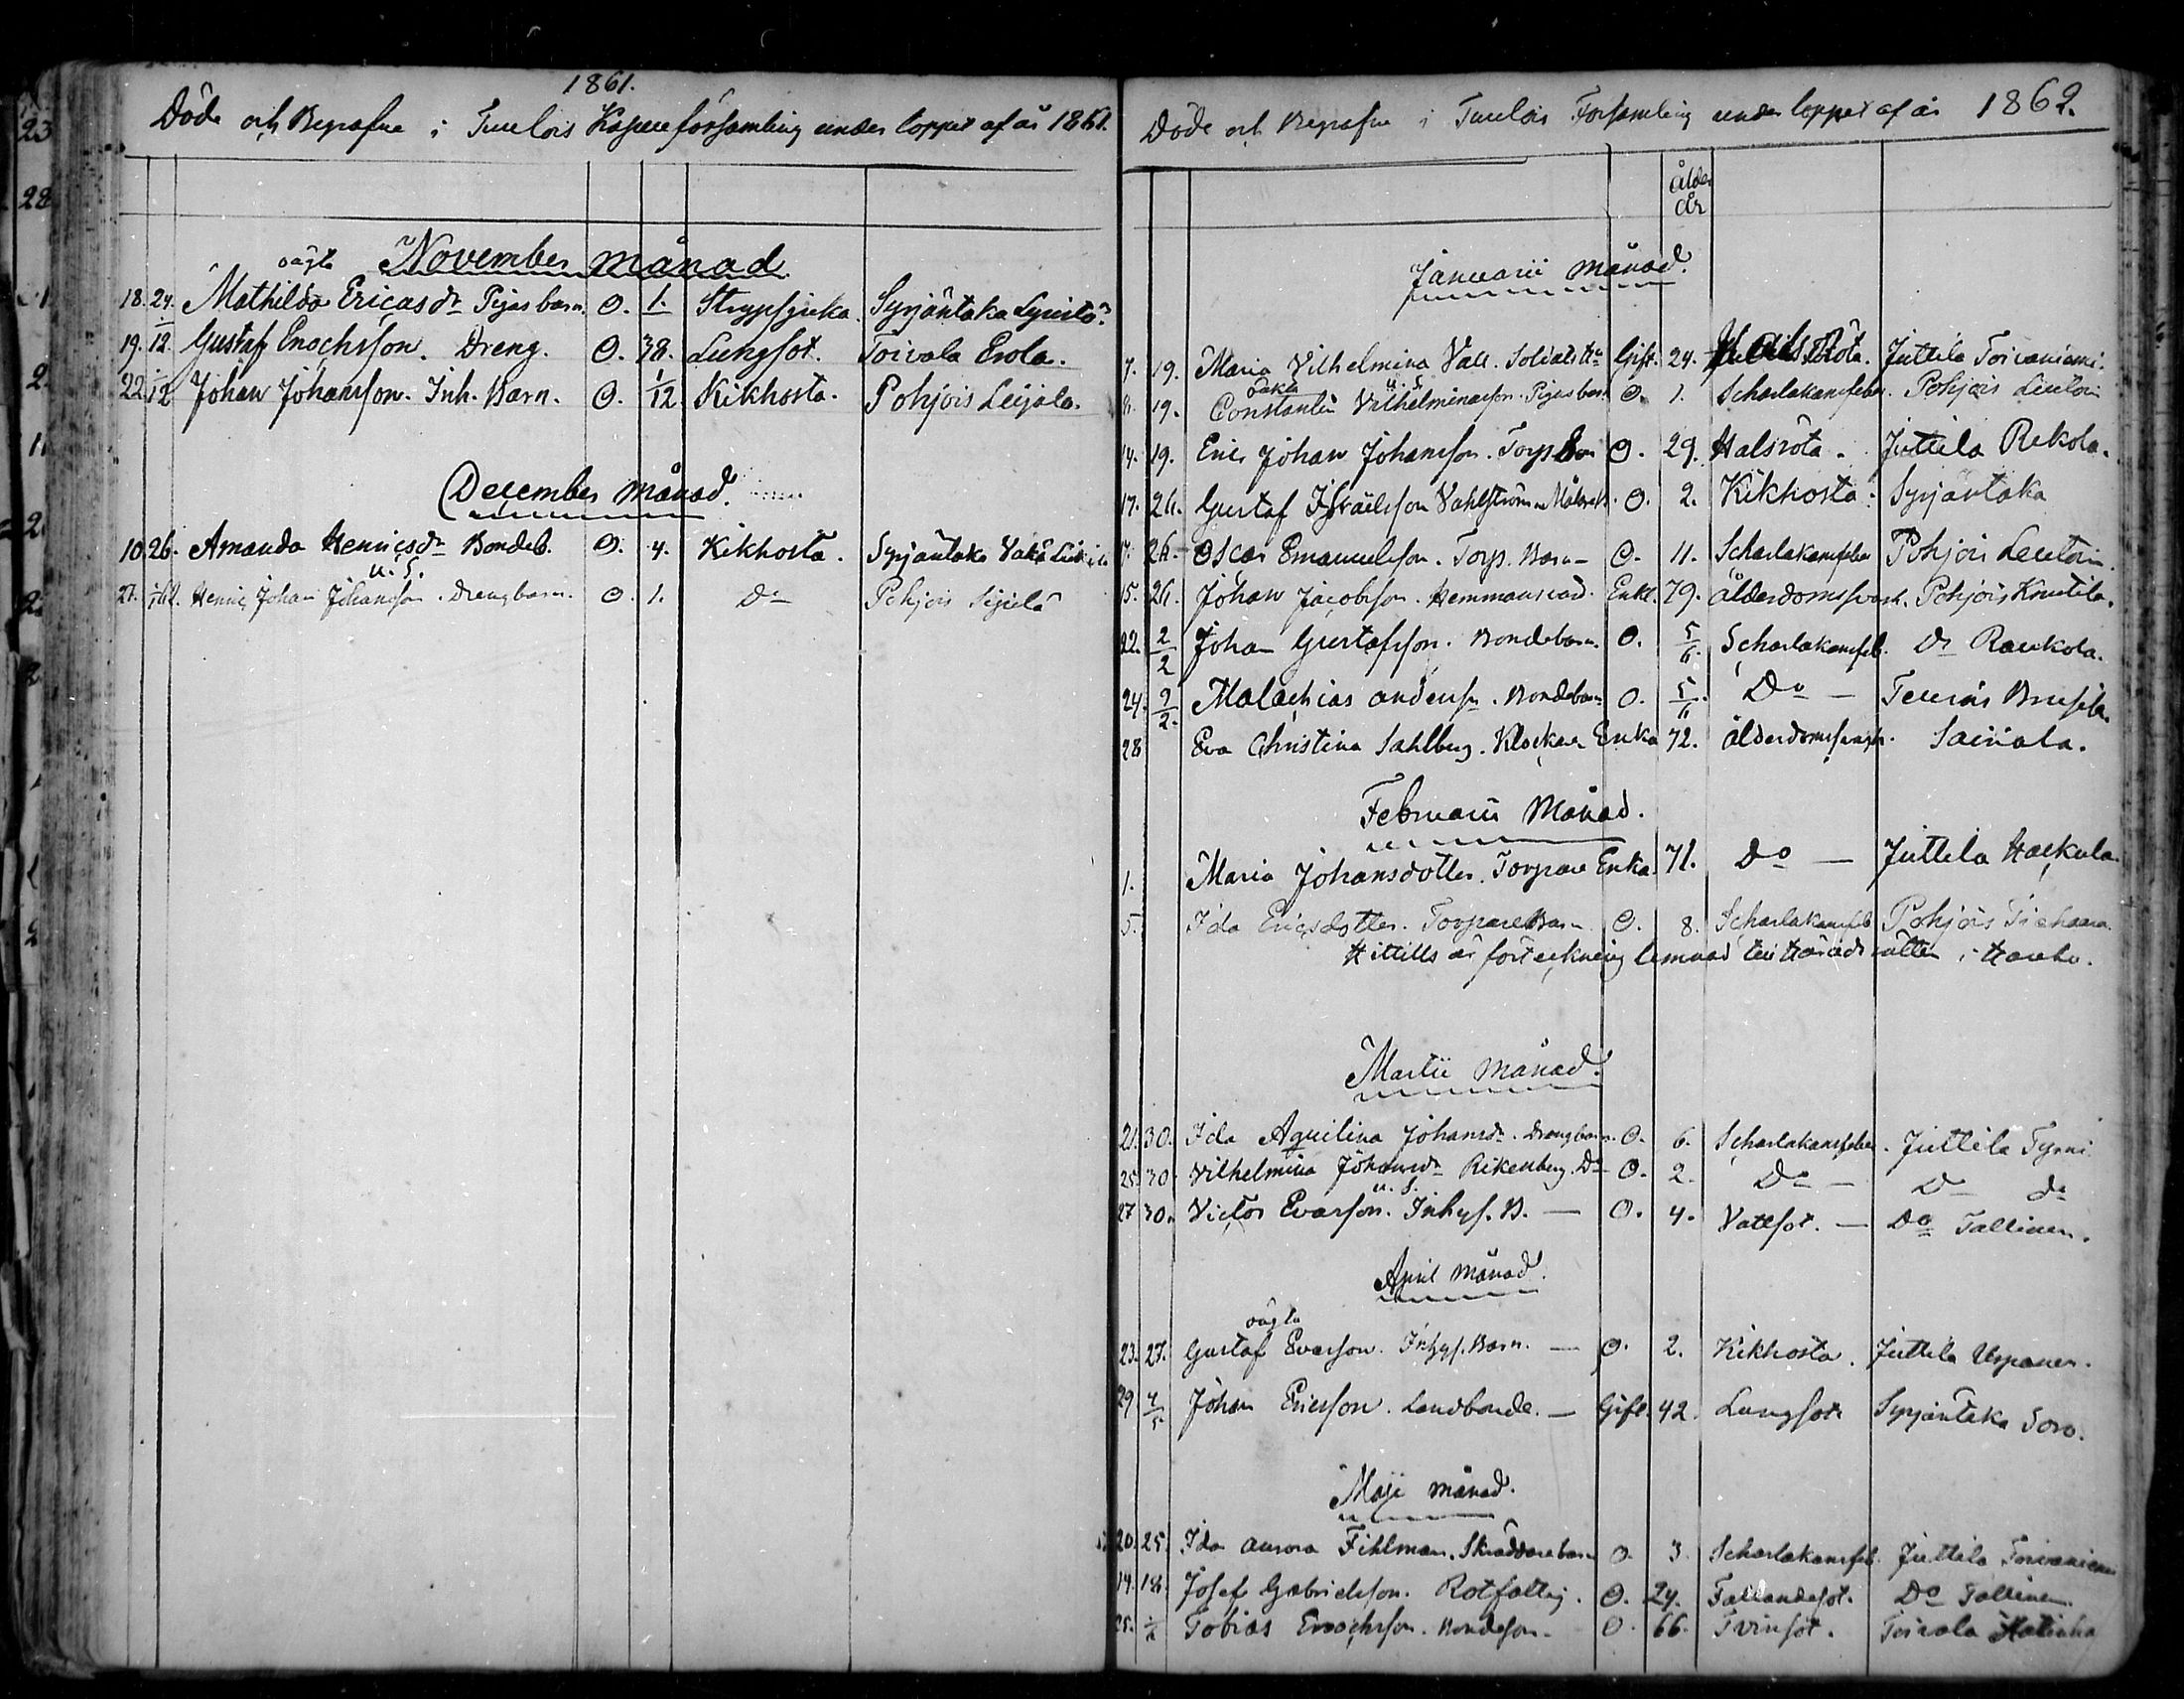 1861.
Döde och Begrafne i Tuulois Kapellförsamling under loppet af år 1861.
November månad.
oägta
18. 24. Mathilda Ericasdr Pigas barn. O. 1. Strypsjuka. Syrjäntaka
19. 1/12. Gustaf Enochsson. Dreng. O. 38. Lungsot. Toivala Erola.
22. 1/12 Johan Johansson. Inh. Barn. O. 1/12. Kikhosta. Pohjois Leijala.
December månad.
10. 26. Amanda Henricsdr Bondeb. O. 4. Kikhosta. Syrjäntaka
u. S.
27. Henric Johan Johansson. Drengbarn. O. 1. Do Pohjois
Döde och Begrafne i Tuulois Församling under loppet af år 1862.
ålder
år
Januarii månad.
7. 19. Maria Vilhelmina Vall. Soldats Hu Gift. 24. Halsröta. Juttila Toivaniemi.
oäkta u. S.
8. 19. Constantin Vilhelminasson. Pigas barn O. 1. Scharlakansfeber. Pohjois
14. 19. Eric Johan Johansson. Torp. Son O. 29. Halsröta. Juttila Rekola.
17. 26. Gustaf Israelsson Vahlström O. 2. Kikhosta. Syrjäntaka
17. 26. Oscar Emanuelsson. Torp. Barn O. 11. Scharlakansfeber Pohjois
15. 26. Johan Jacobsson. Hemmansräd. Enkl. 79. ålderdomssvagh. Pohjois Knutila.
22. 2/2 Johan Gustafsson. Bondebarn. O. 5/6. Scharlakansfeb. Do Raukola.
24. 2/2. Malachias Andersson. Bondebarn O. 5/6. Do — Teurois
28 Eva Christina Sahlberg. Klockare Enka 72. ålderdomssvagh. Sairiala.
Februarii Månad.
1. Maria Johansdotter. Torpare Enka. 71. Do — Juttila
5. Ida Ericsdotter. Torpare Barn O. 8. Scharlakansfeb. Pohjois
Hittills är förteckning lemnad till Häradsrätten i Hauho.
Martii månad.
21. 30. Ida Aquilina Johansdr. Drengbarn. O. 6. Scharlakansfeber. Juttila Tyrni
25. 30. Vilhelmina Johansdr Rikenberg. Do O. 2. Do — Do do
u. S.
27 30. Victor Evasson. Inhys. B. — O. 4. Vattsot. — Do Tallinen.
April månad.
oägta
23. 27. Gustaf Evasson. Inhys. Barn. — O. 2. Kikhosta. Juttila Uspanen.
29 4/5 Johan Ericsson. Landbonde. — Gift. 42. Lungsot. Syrjäntaka Soro.
Maji månad.
20. 25. Ida Aurora Fihlman. Skräddarebarn O. 3. Scharlakansfeb. Juttila Toivaniemi
14. 18. Josef Gabrielsson. Rotfattig. O. 24. Fallandesot. Do Tallinen
25. Tobias Enochsson. Bondeson. O. 66. Tvinsot. Toivala